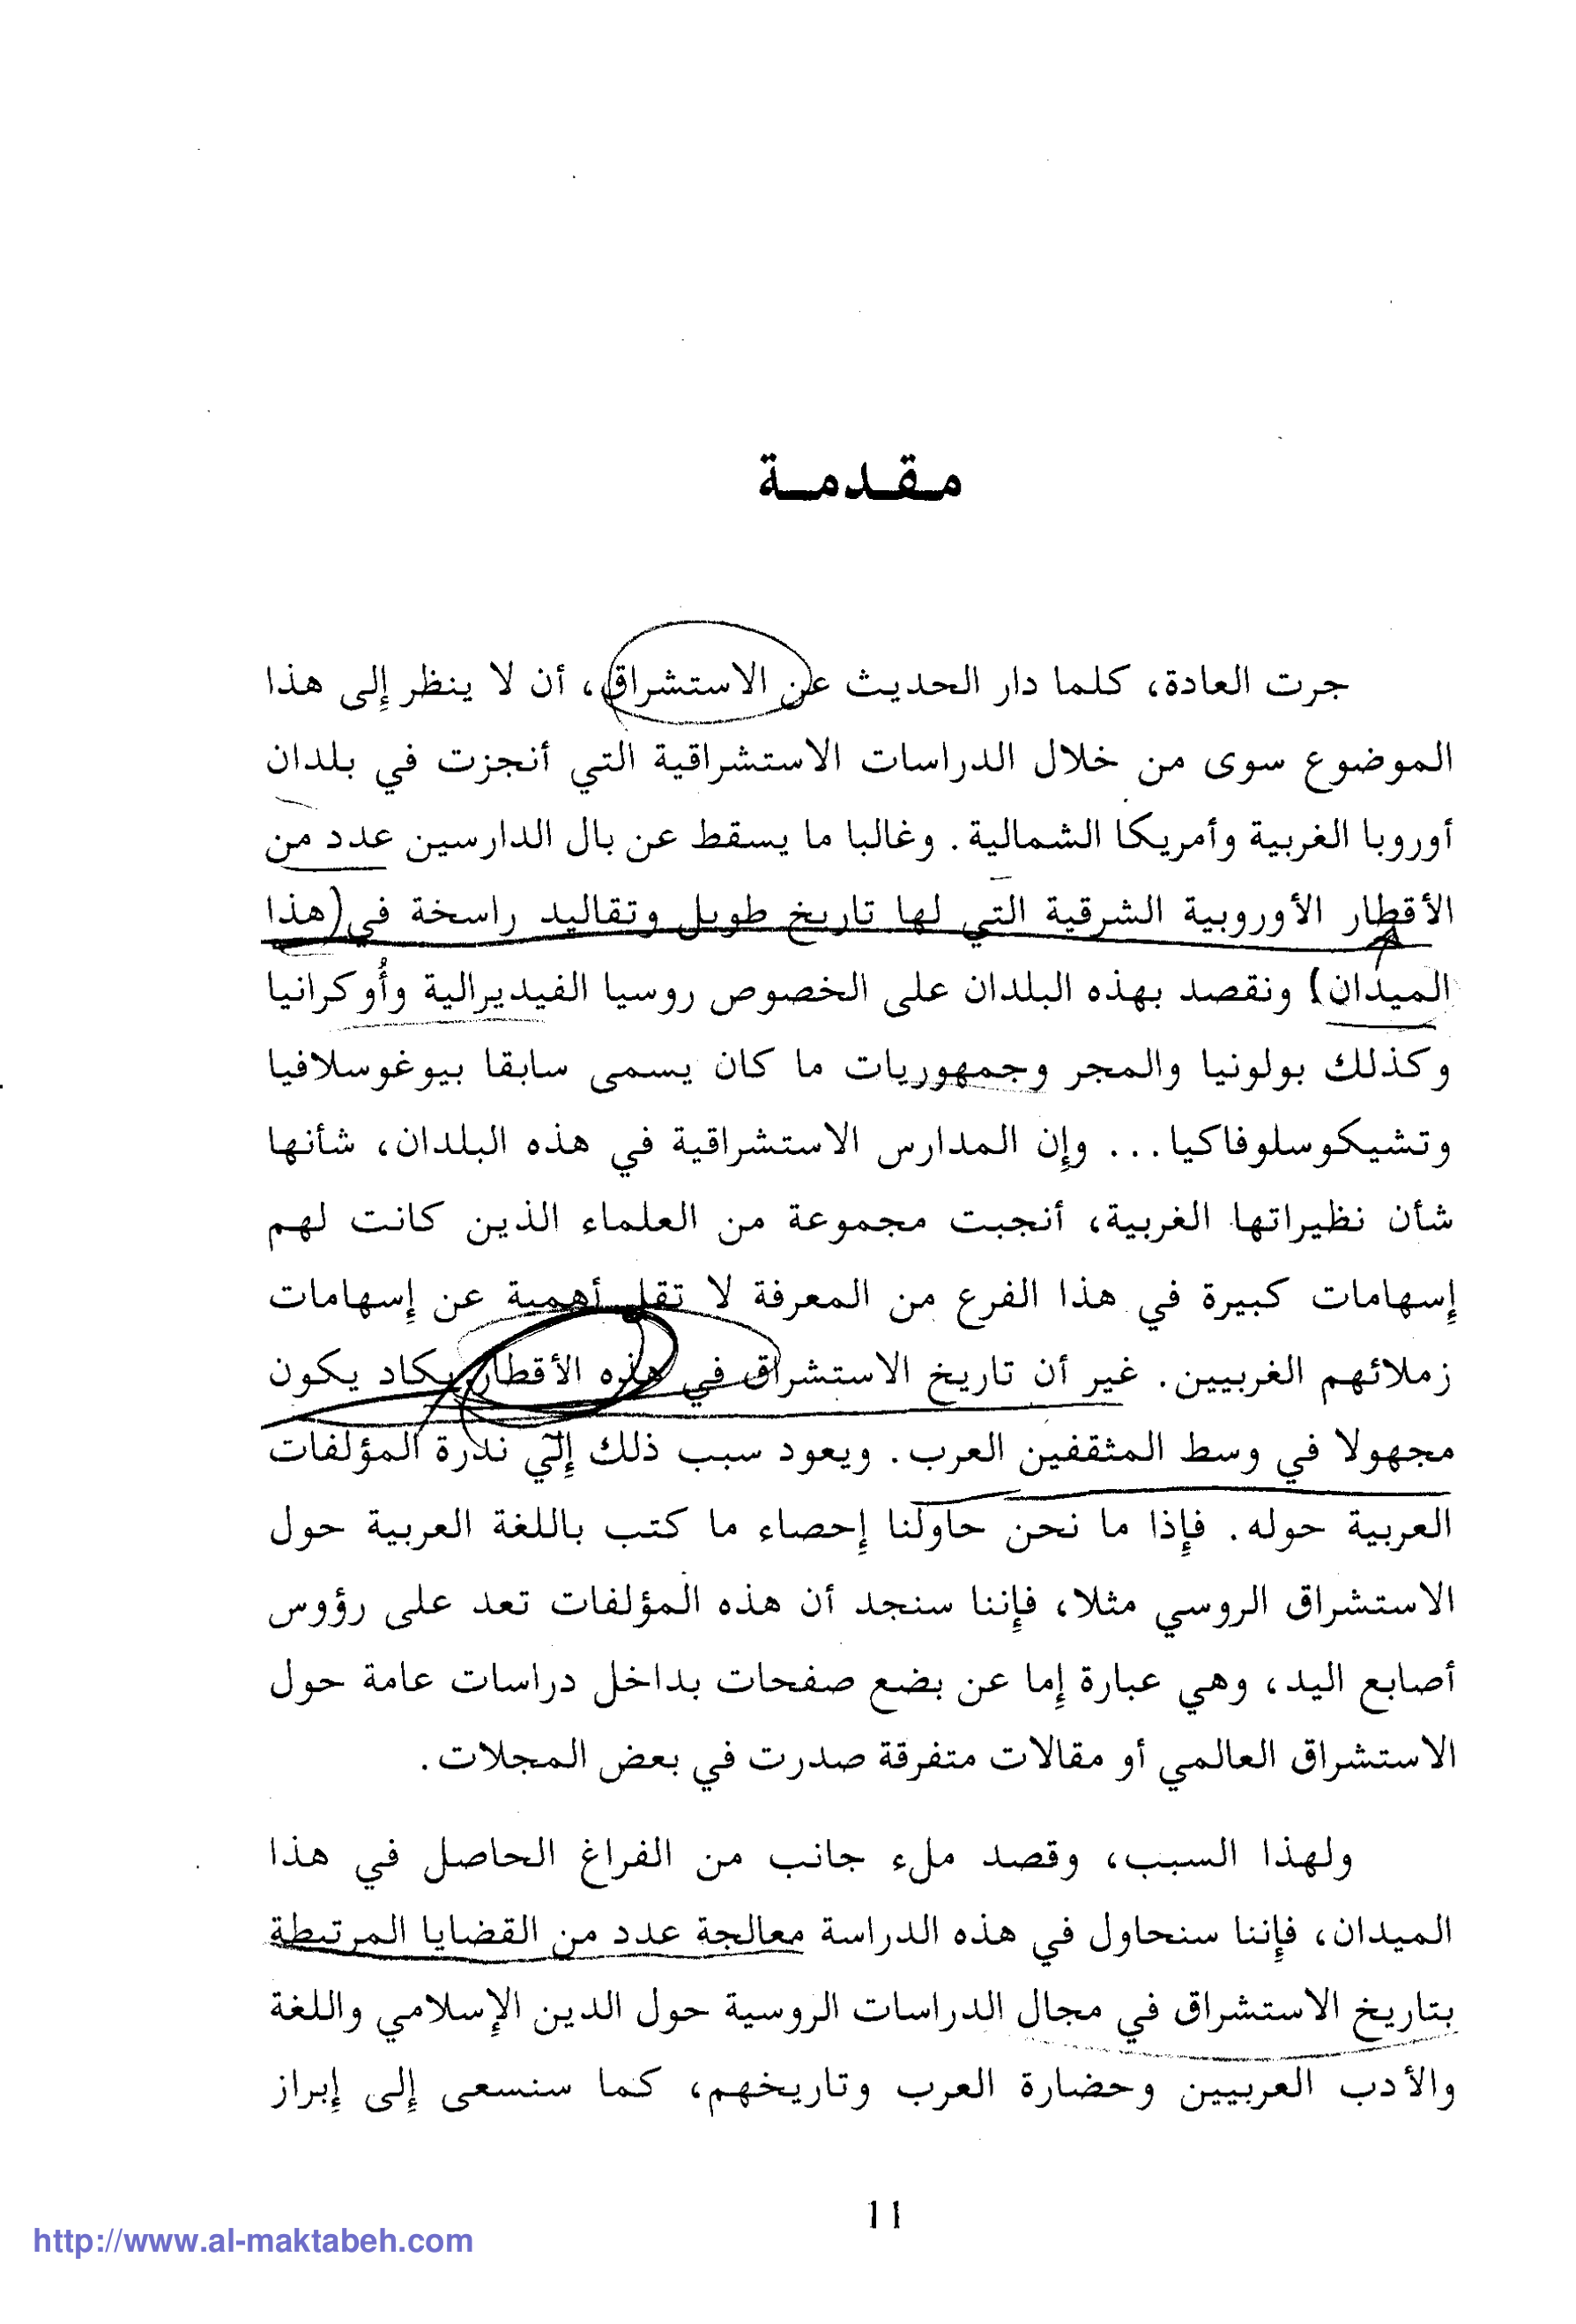 مقدمة
جرت العادة، كلما دار الحديث عن الاستشراق، أن لا ينظر إلى هذا
الموضوع سوى من خلال الدراسات الاستشراقية التي أنجزت في بلدان
أوروبا الغربية وأمريكا الشمالية. وغالبا ما يسقط عن بال الدارسين عدد من
الأقطار الأوروبية الشرقية التي لها تاريخ طويل وتقاليد راسخة في (هذا
الميدان) ونقصد بهذه البلدان على الخصوص روسيا الفيديرالية وأُوكرانيا
وكذلك بولونيا والمجر وجمهوريات ما كان يسمى سابقا بيوغوسلافيا
وتشيكوسلوفاكيا... وإن المدارس الاستشراقية في هذه البلدان، شأنها
شأن نظيراتها الغربية، أنجبت مجموعة من العلماء الذين كانت لهم
إسهامات كبيرة في هذا الفرع من المعرفة لا تقل أهمية عن إسهامات
زملائهم الغربيين. غير أن تاريخ الاستشراق في هذه الأقطار يكاد يكون
مجهولا في وسط المثقفين العرب. ويعود سبب ذلك إلى ندرة المؤلفات
العربية حوله. فإذا ما نحن حاولنا إحصاء ما كتب باللغة العربية حول
الاستشراق الروسي مثلا، فإننا سنجد أن هذه المؤلفات تعد على رؤوس
أصابع اليد، وهي عبارة إما عن بضع صفحات بداخل دراسات عامة حول
الاستشراق العالمي أو مقالات متفرقة صدرت في بعض المجلات.
ولهذا السبب، وقصد ملء جانب من الفراغ الحاصل في هذا
الميدان، فإننا سنحاول في هذه الدراسة معالجة عدد من القضايا المرتبطة
بتاريخ الاستشراق في مجال الدراسات الروسية حول الدين الإسلامي واللغة
والأدب العربيين وحضارة العرب وتاريخهم، كما سنسعى إلى إبراز
11
http://www.al-maktabeh.com